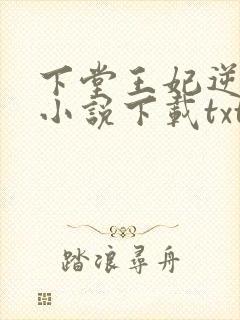 下堂王妃逆
小說下載txt
踏浪尋舟